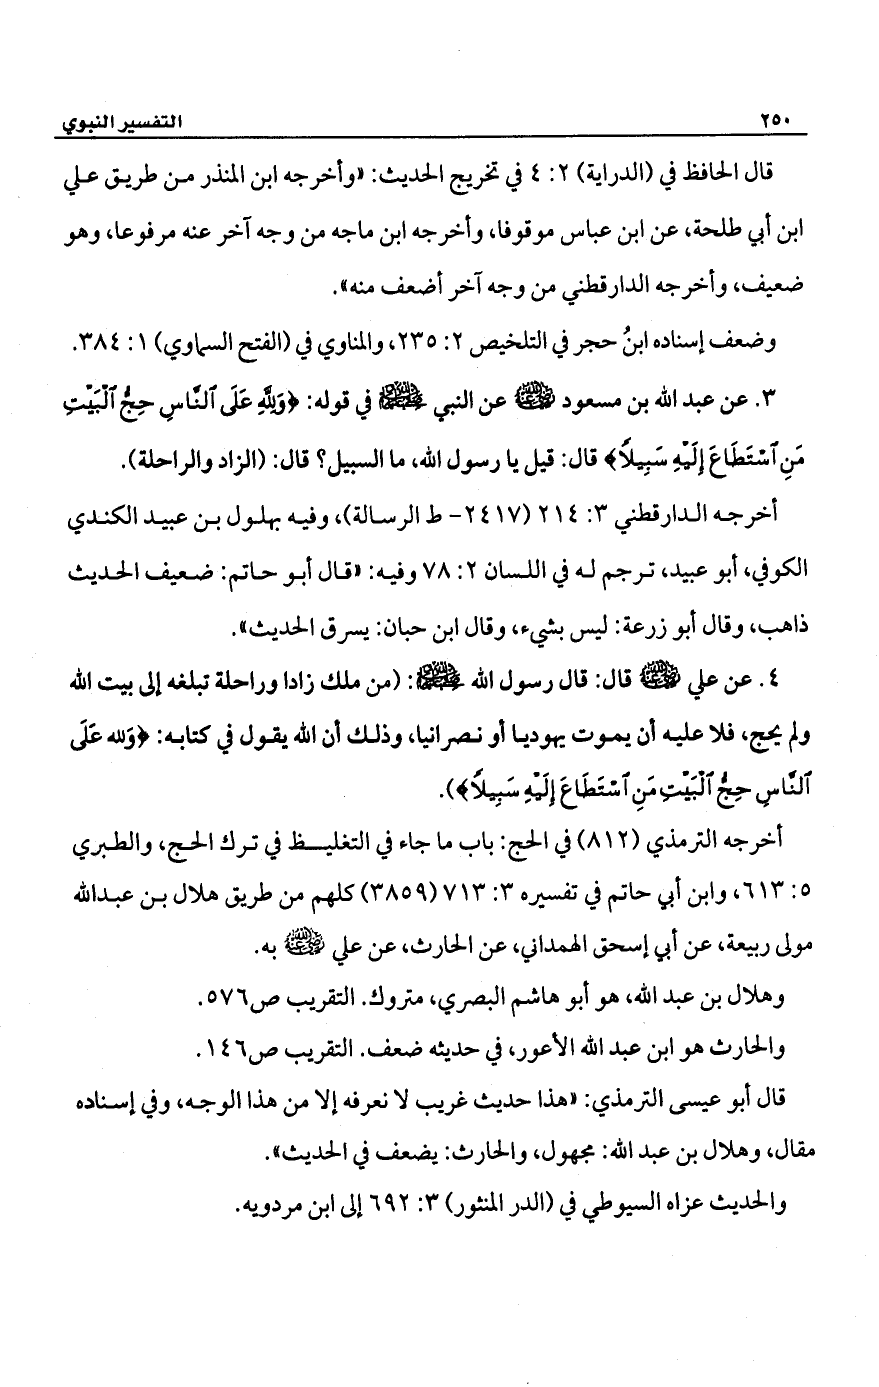 ٢٥٠
التفسير النبوي
قال الحافظ في (الدراية) ٢: ٤ في تخريج الحديث: «وأخرجه ابن المنذر من طريق علي
ابن أبي طلحة، عن ابن عباس موقوفا، وأخرجه ابن ماجه من وجه آخر عنه مرفوعا، وهو
ضعيف، وأخرجه الدارقطني من وجه آخر أضعف منه».
وضعف إسناده ابنُ حجر في التلخيص ٢: ٢٣٥، والمناوي في (الفتح السماوي) ١: ٣٨٤.
٣. عن عبد الله بن مسعود رضي الله عنه عن النبي ﷺ في قوله: ﴿وَلِلَّهِ عَلَى ٱلنَّاسِ حِجُّ ٱلْبَيْتِ
مَنِ ٱسْتَطَاعَ إِلَيْهِ سَبِيلًا﴾ قال: قيل يا رسول الله، ما السبيل؟ قال: (الزاد والراحلة).
أخرجه الدارقطني ٣: ٢١٤ (٢٤١٧- ط الرسالة)، وفيه بهلول بن عبيد الكندي
الكوفي، أبو عبيد، ترجم له في اللسان ٢: ٧٨ وفيه: «قال أبو حاتم: ضعيف الحديث
ذاهب، وقال أبو زرعة: ليس بشيء، وقال ابن حبان: يسرق الحديث».
٤. عن علي رضي الله عنه قال: قال رسول الله ﷺ: (من ملك زادا وراحلة تبلغه إلى بيت الله
ولم يحج، فلا عليه أن يموت يهوديا أو نصرانيا، وذلك أن الله يقول في كتابه: ﴿وَلله عَلَى
ٱلنَّاسِ حِجُّ ٱلْبَيْتِ مَنِ ٱسْتَطَاعَ إِلَيْهِ سَبِيلًا﴾).
أخرجه الترمذي (٨١٢) في الحج: باب ما جاء في التغليظ في ترك الحج، والطبري
٥: ٦١٣، وابن أبي حاتم في تفسيره ٣: ٧١٣ (٣٨٥٩) كلهم من طريق هلال بن عبدالله
مولى ربيعة، عن أبي إسحق الهمداني، عن الحارث، عن علي رضي الله عنه به.
وهلال بن عبد الله، هو أبو هاشم البصري، متروك. التقريب ص٥٧٦.
والحارث هو ابن عبد الله الأعور، في حديثه ضعف. التقريب ص١٤٦.
قال أبو عيسى الترمذي: «هذا حديث غريب لا نعرفه إلا من هذا الوجه، وفي إسناده
مقال، وهلال بن عبد الله: مجهول، والحارث: يضعف في الحديث».
والحديث عزاه السيوطي في (الدر المنثور) ٣: ٦٩٢ إلى ابن مردويه.